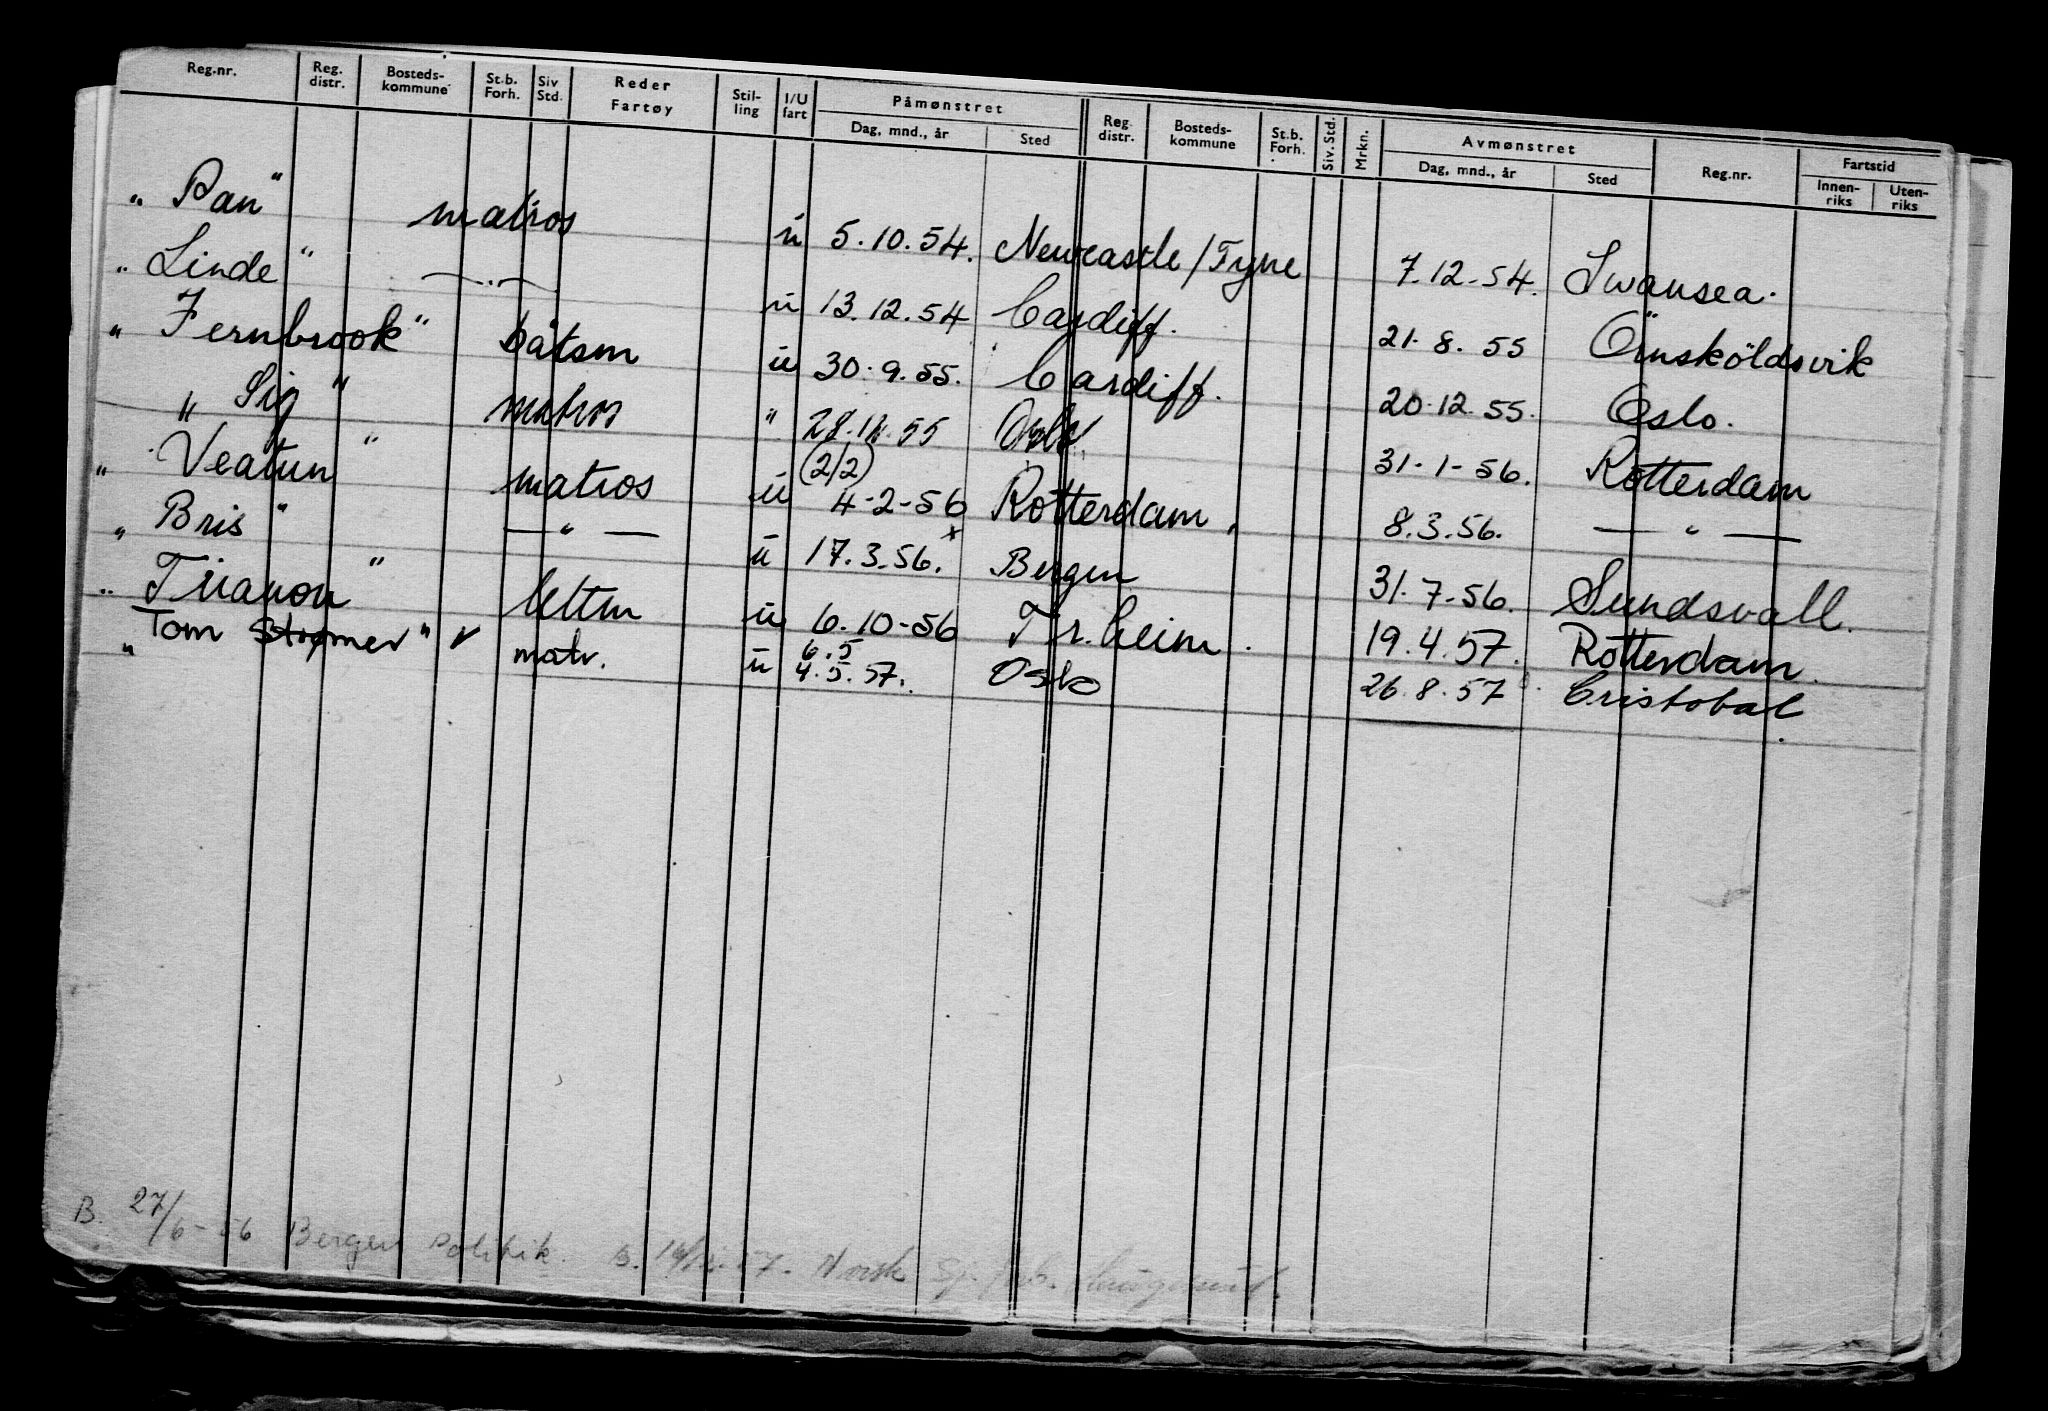 Reg.nr. Reg. distr. Bosteds-kommune St.b. Forh. Siv Std. Reder Fartøy Stil-ling I/U fart Påmønstret Dag, mnd., år Sted Reg. distr. Bosteds-kommune St.b. Forh. Siv. Std. Mrkn. Avmønstret Dag, mnd., år Sted Reg.nr. Fartstid Innen-riks Uten-riks
„ Pan" matros u 5.10.54. Newcastle/Tyne 7.12-54. Swansea.
„ Linde" —„— u 13.12.54 Cardiff. 21.8.55 Örnsköldsvik
„ Fernbrook" båtsm u 30.9.55. Cardiff. 20.12.55. Oslo.
„ Sig" matros " 55 Oslo. 31-1-56. Rotterdam
„ Veatun" matros u (2/2) 4-2-56 Rotterdam. 8.3.56. —"—
„ Bris" —"— u 17.3.56. Bergen 31.7-56. Sundsvall.
„ Trianon" lettm u 6.10-56 Tr.heim. 19.4.57. Rotterdam.
„ Tom Strømer" v matr. u 6.5 4.5.57. Oslo 26.8.57 Cristobal.
B. 27/6-56 Bergen Politik. B. 57. Norsk